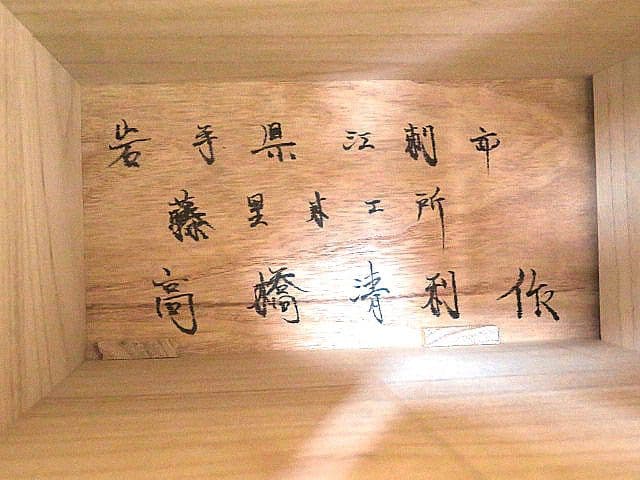 岩手県江刺市
藤里木工所
高橋清利作